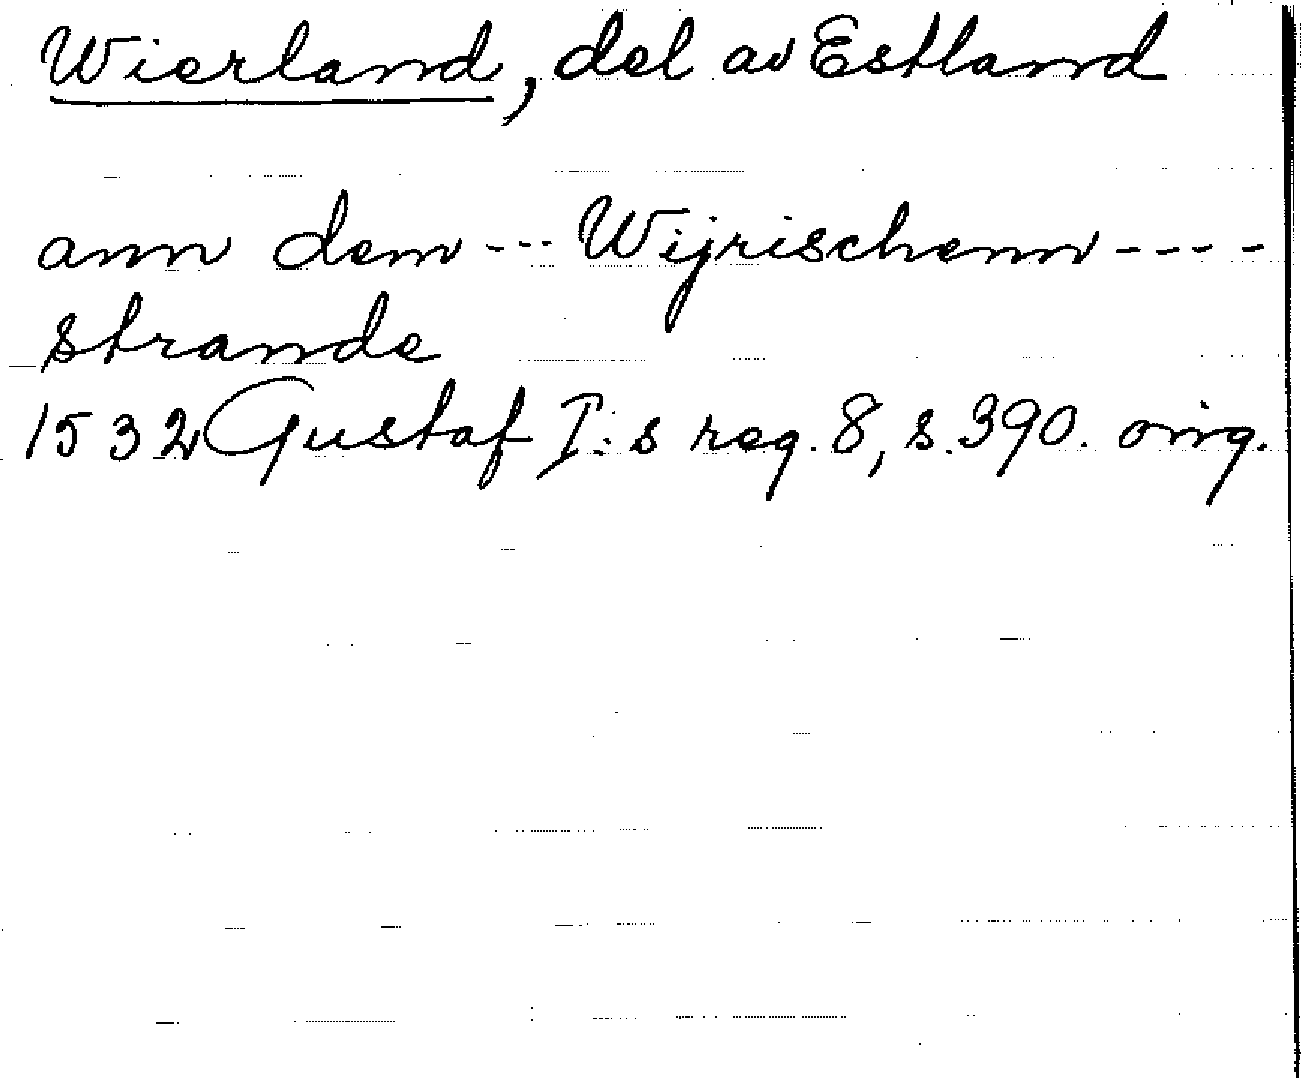 Wierland, del av Estland
ann dem --- Wijrischenn ----
strande
1532 Gustaf I:s reg. 8, s. 390. orig.